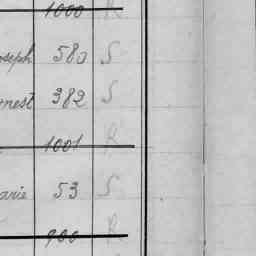 1000 R
oseph 580 S
nest 382 S
1001 R
arie 53 S
900 R